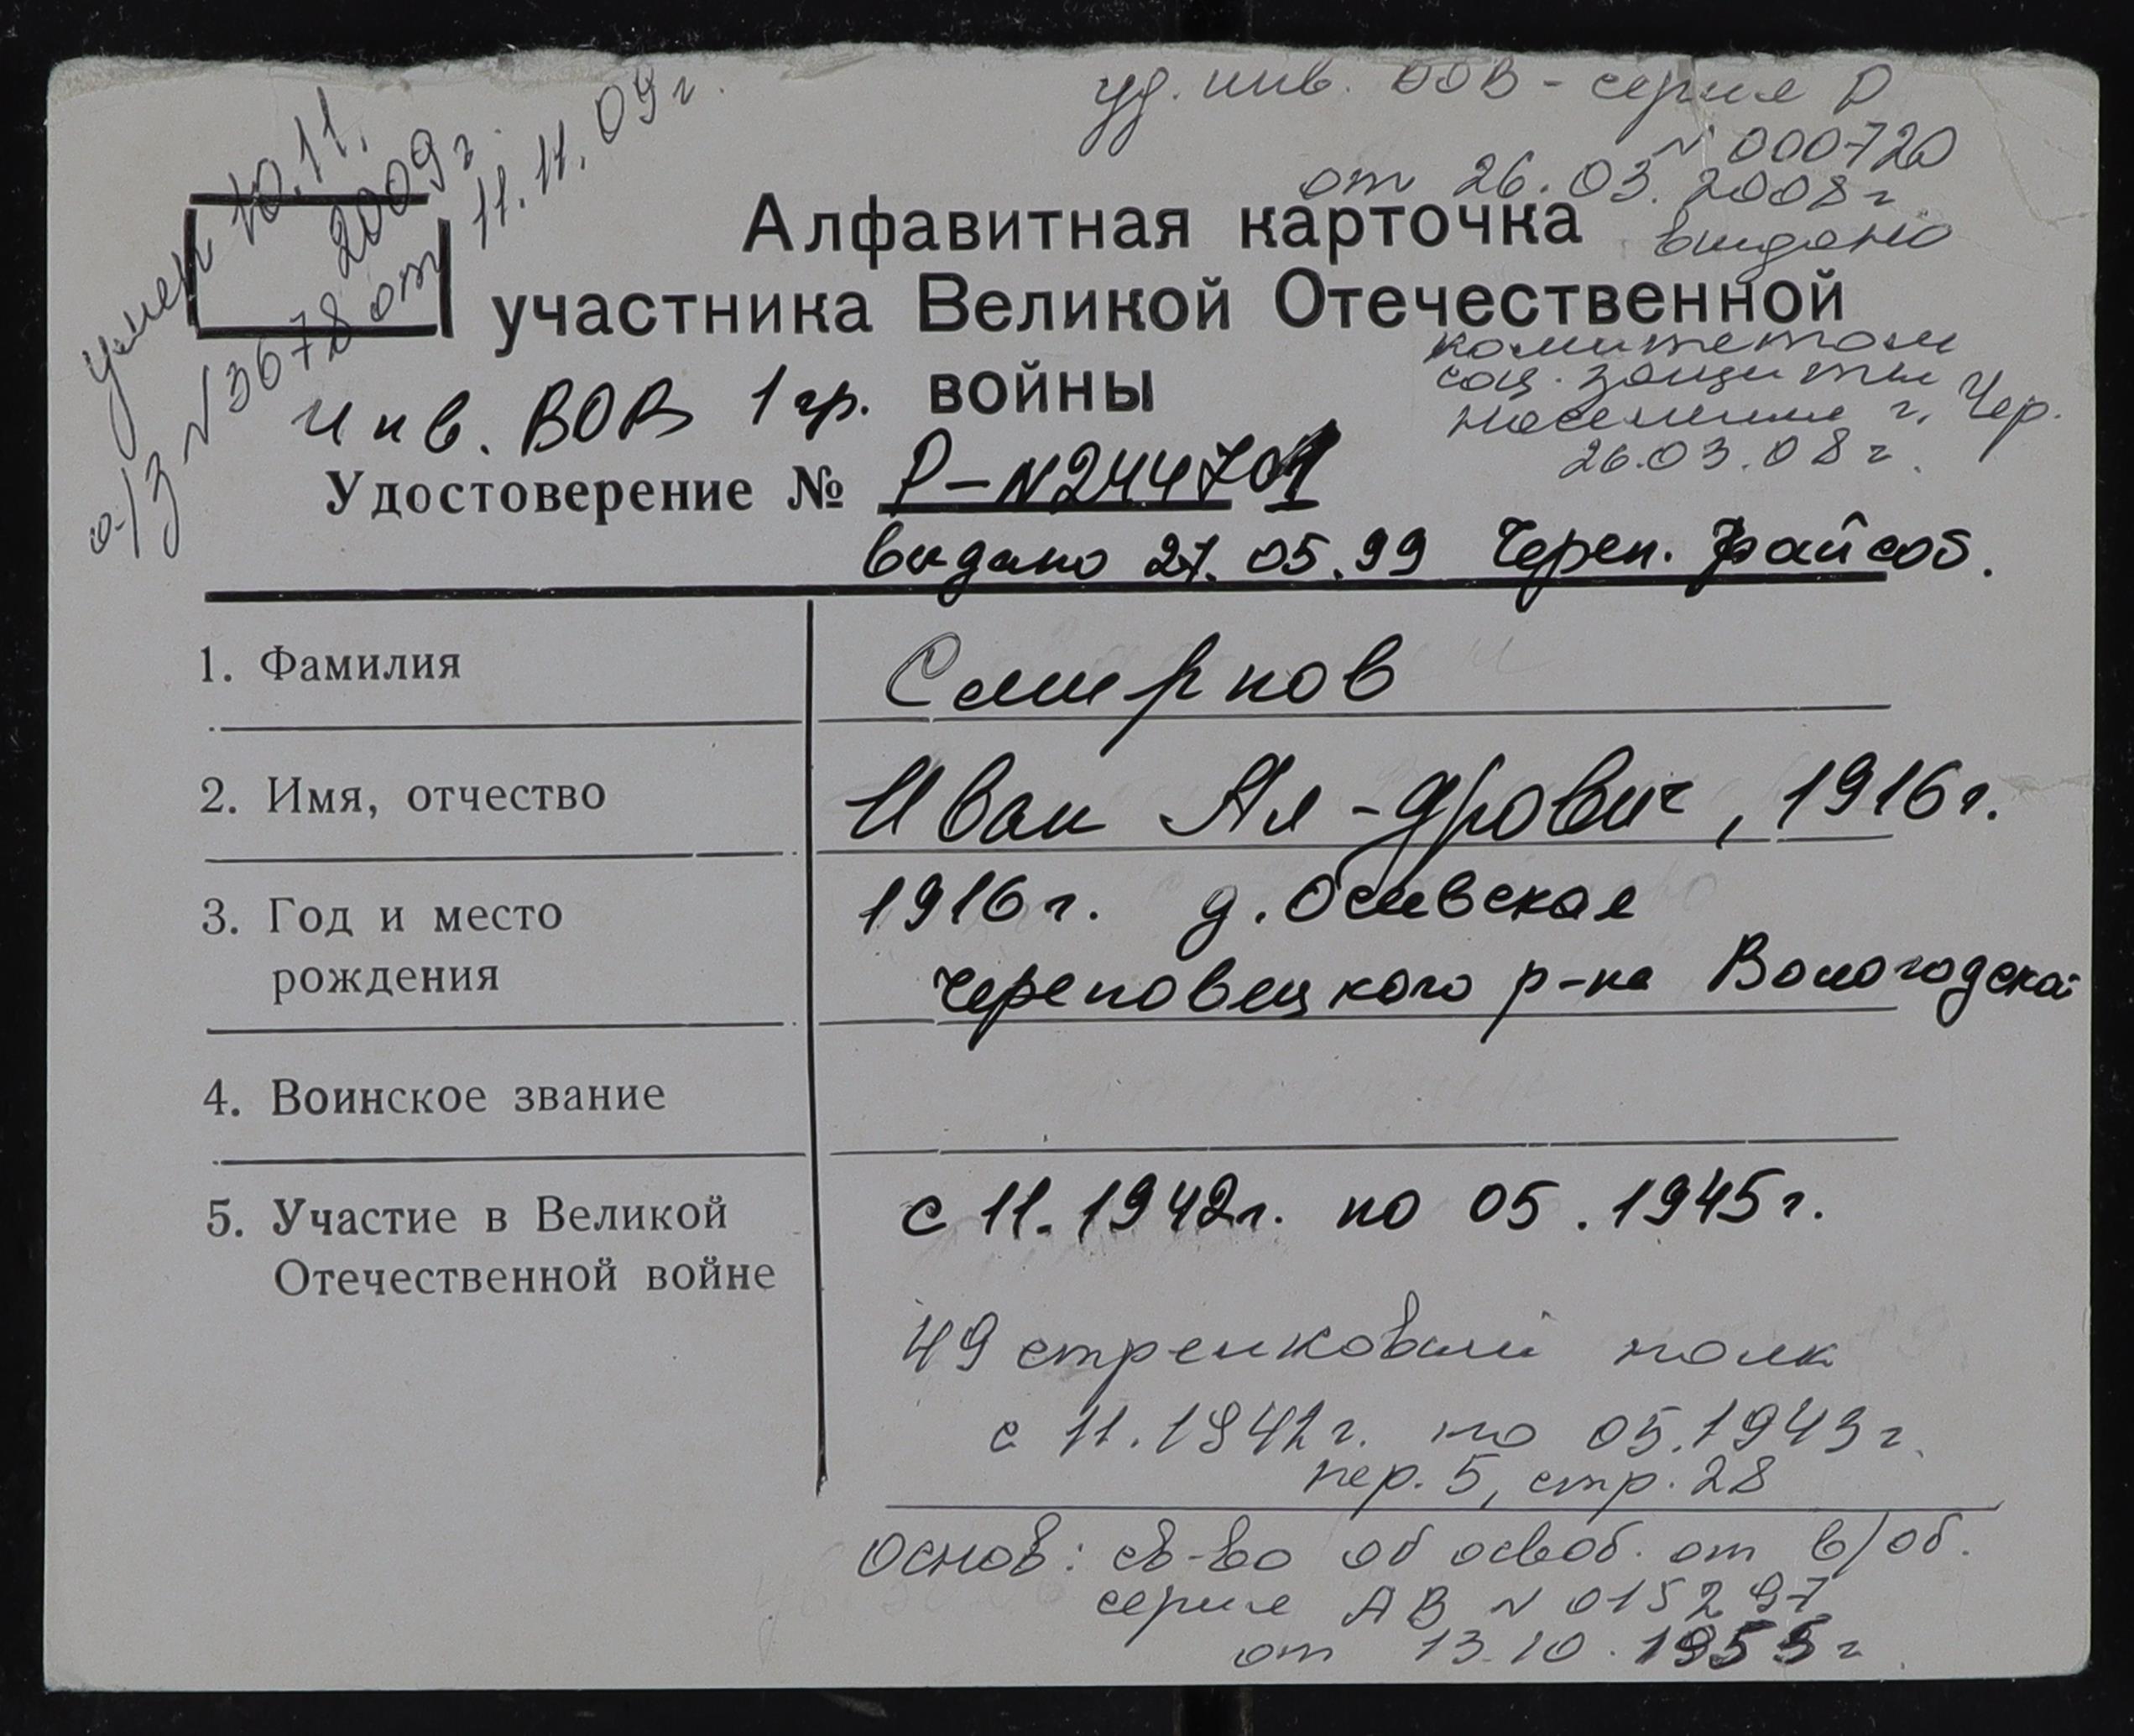 уд. инв. ВОВ - серия Р
N 000720
от 26.03.2008 г.
выдано
комитетом
соц. защиты
населения г. Чер.
26.03.08 г.
умер 10.11.
2009 г.
а/з N 3678 от 11.11.09 г.
Алфавитная карточка
участника Великой Отечественной
войны
Инв. ВОВ 1 гр.
Удостоверение № Р-N244701
выдано 27.05.99 Череп. райсоб.
1. Фамилия
Смирнов
2. Имя, отчество
Иван Ал-дрович, 1916 г.
3. Год и место
рождения
1916 г. д.
Череповецкого р-на Вологодской
4. Воинское звание
5. Участие в Великой
Отечественной войне
с 11.1942 г. по 05.1945 г.
49 стрелковый полк
с 11.1942 г. по 05.1943 г.
пер. 5, стр. 28
Основ: св-во об освоб. от в/об.
серия АВ N 015297
от 13.10.1955 г.